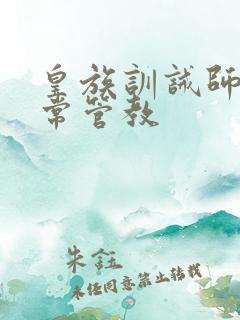 皇族訓誡師日
常管教
朱鈺
未经同意禁止转载